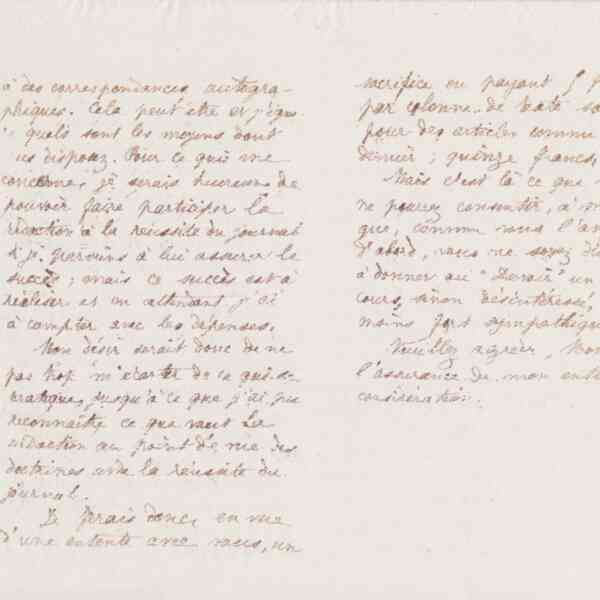 à des correspondances autogra-
phiques. Cela peut être et j'ignore
quels sont les moyens dont
us disposez. Pour ce qui me
concerne, je serais heureux de
pouvoir faire participer la
rédaction à la réussite du journal
si je parviens à lui assurer le
succès ; mais ce succès est à
réaliser et en attendant j'ai
à compter avec les dépenses.
Mon désir serait donc de ne
pas trop m'écarter de ce qui se
pratique, jusqu'à ce que j'ai pu
reconnaître ce que vaut la
rédaction au point de vue des
doctrines et de la réussite du
journal.
Je ferais donc, en vue
d'une entente avec vous, un
sacrifice en payant 5 f
par colonne de texte so
pour des articles comme
dernier ; quinze francs,
Mais c'est là ce que
ne pouvez consentir, à m
que, comme vous l'a
d'abord, vous ne soyez di
à donner au "Devoir" un
cours, sinon désintéressé,
moins fort sympathique
Veuillez agréer, Mon
l'assurance de mon enti
considération.